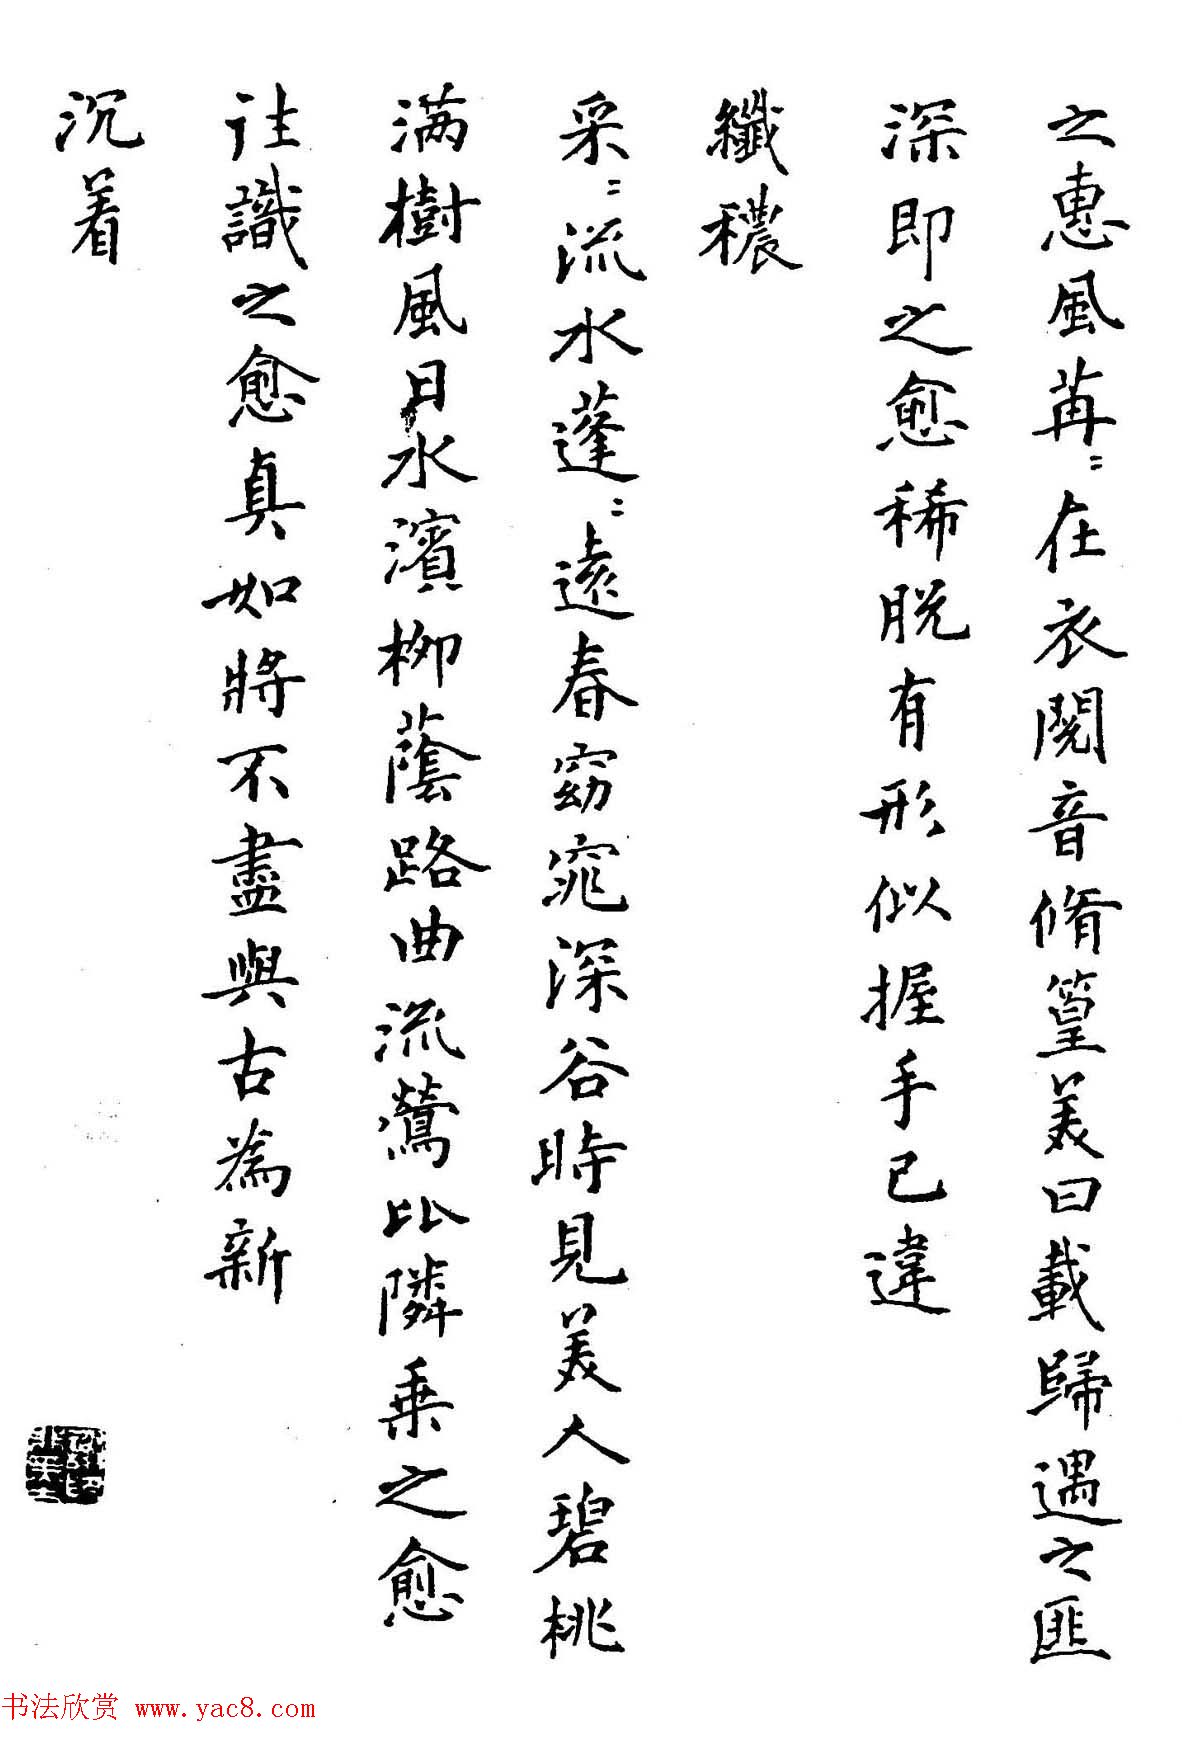 之惠風苒〻在衣閱音脩篁美曰載歸遇之匪
深即之愈稀脱有形似握手已違
纖穠
采〻流水蓬〻遠春窈窕深谷時見美人碧桃
满樹風日水濱柳蔭路曲流鶯比隣乗之愈
往識之愈真如將不盡與古為新
沉着
书法欣赏 www.yac8.com